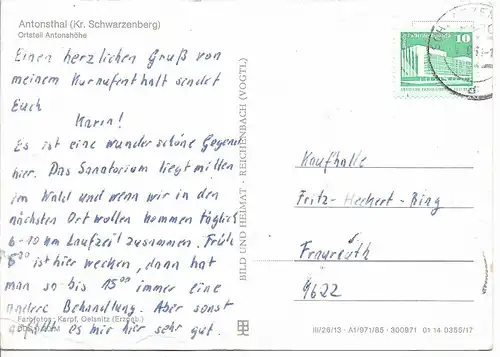 Antonsthal (Kr. Schwarzenberg)
Ortsteil Antonshöhe
Einen herzlichen Gruß von
meinem Kuraufenthalt sendet
Euch
Karin!
Es ist eine wunderschöne Gegend
hier. Das Sanatorium liegt mitten
im Wald und wenn wir in den
nächsten Ort wollen kommen täglich
6-10 km Laufzeit zusammen. Früh
6⁰⁰ ist hier wecken, dann hat
man so bis 15⁰⁰ immer eine
andere Behandlung. Aber sonst
gefällt es mir hier sehr gut.
Farbfotos: Karpf, Oelsnitz (Erzgeb.)
BILD UND HEIMAT · REICHENBACH (VOGTL)
10
Kaufhalle
Fritz-Heckert-Ring
Fraureuth
9622
III/26/13 · A1/971/85 · 300971 01 14 0355/17